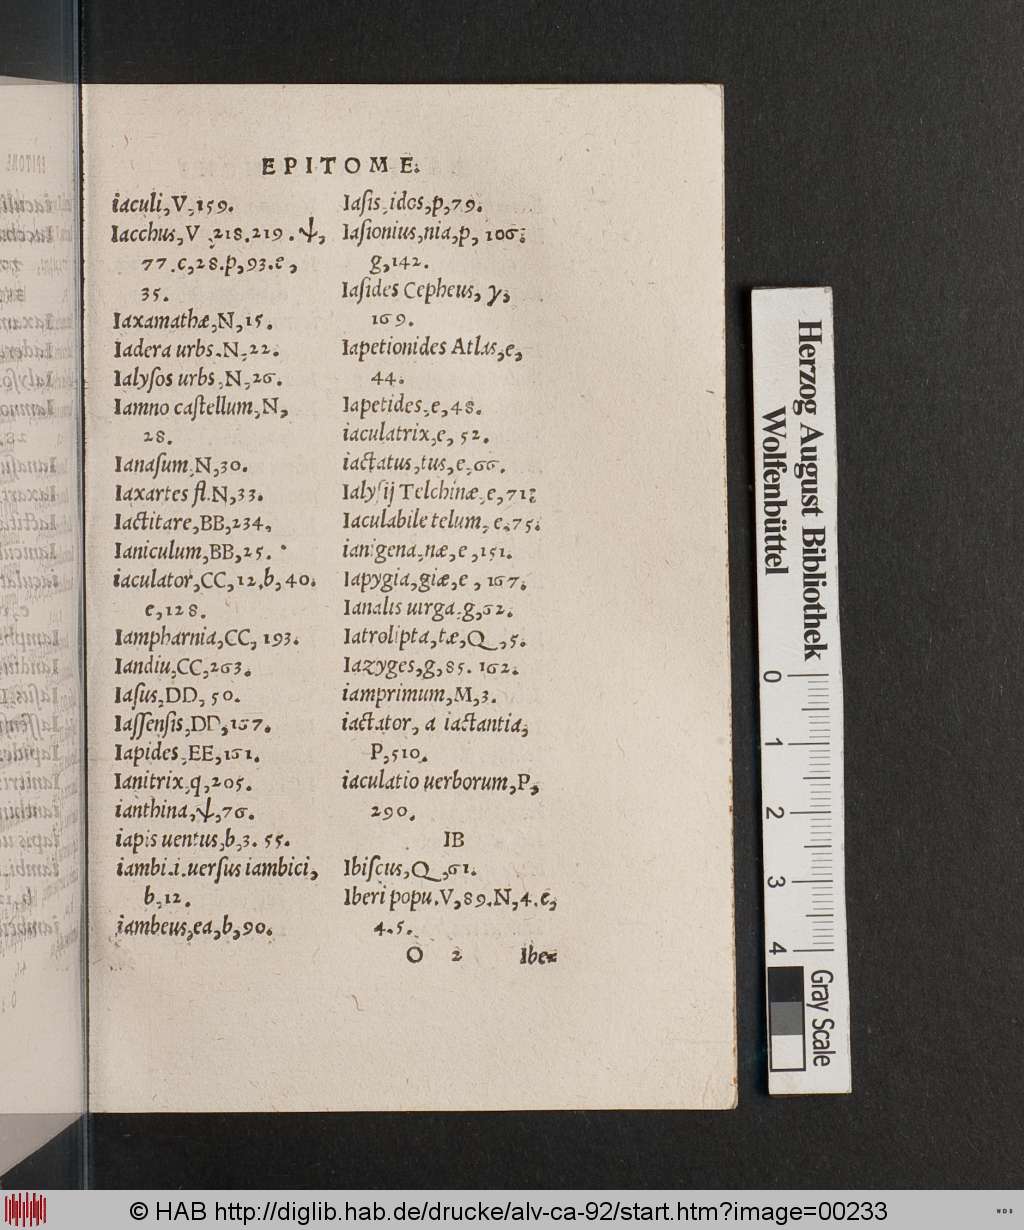 EPITOME.
iaculi, V, 159.
Iacchus, V, 218. 219. ψ,
77. c, 28. p, 93. e,
35.
Iaxamathæ, N, 15.
Iadera urbs. N, 22.
Ialyſos urbs, N, 26.
Iamno caſtellum, N,
28.
Ianaſum, N, 30.
Iaxartes fl. N, 33.
Iactitare, BB, 234,
Ianiculum, BB, 25.
iaculator, CC, 12. b, 40.
e, 128.
Iampharnia, CC, 193.
Iandiu, CC, 263.
Iaſus, DD, 50.
Iaſſenſis, DD, 167.
Iapides, EE, 161.
Ianitrix, q, 205.
ianthina, ψ, 76.
iapis uentus, b, 3. 55.
iambi .i. uerſus iambici,
b, 12.
iambeus, ea, b, 90.
Iaſis, idos, p, 79.
Iaſionius, nia, p, 106.
g, 142.
Iaſides Cepheus, γ,
169.
Iapetionides Atlas, e,
44.
Iapetides, e, 48.
iaculatrix, e, 52.
iactatus, tus, e, 66.
Ialyſij Telchinæ, e, 71.
Iaculabile telum, e, 75.
ianigena, næ, e, 151.
Iapygia, giæ, e, 167.
Ianalis uirga, g, 62.
Iatrolipta, tæ, Q, 5.
Iazyges, g, 85. 162.
iamprimum, M, 3.
iactator, a iactantia,
P, 510.
iaculatio uerborum, P,
290.
IB
Ibiſcus, Q, 61.
Iberi popu. V, 89. N, 4. e,
4. 5.
O 2 Ibe-
Herzog August Bibliothek
Wolfenbüttel
0 1 2 3 4
Gray Scale
© HAB http://diglib.hab.de/drucke/alv-ca-92/start.htm?image=00233